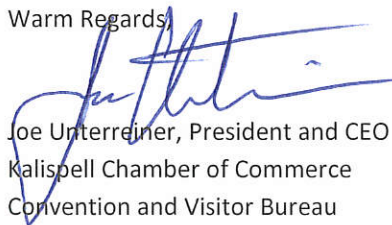 Warm Regards,
Joe Unterreiner, President and CEO
Kalispell Chamber of Commerce
Convention and Visitor Bureau